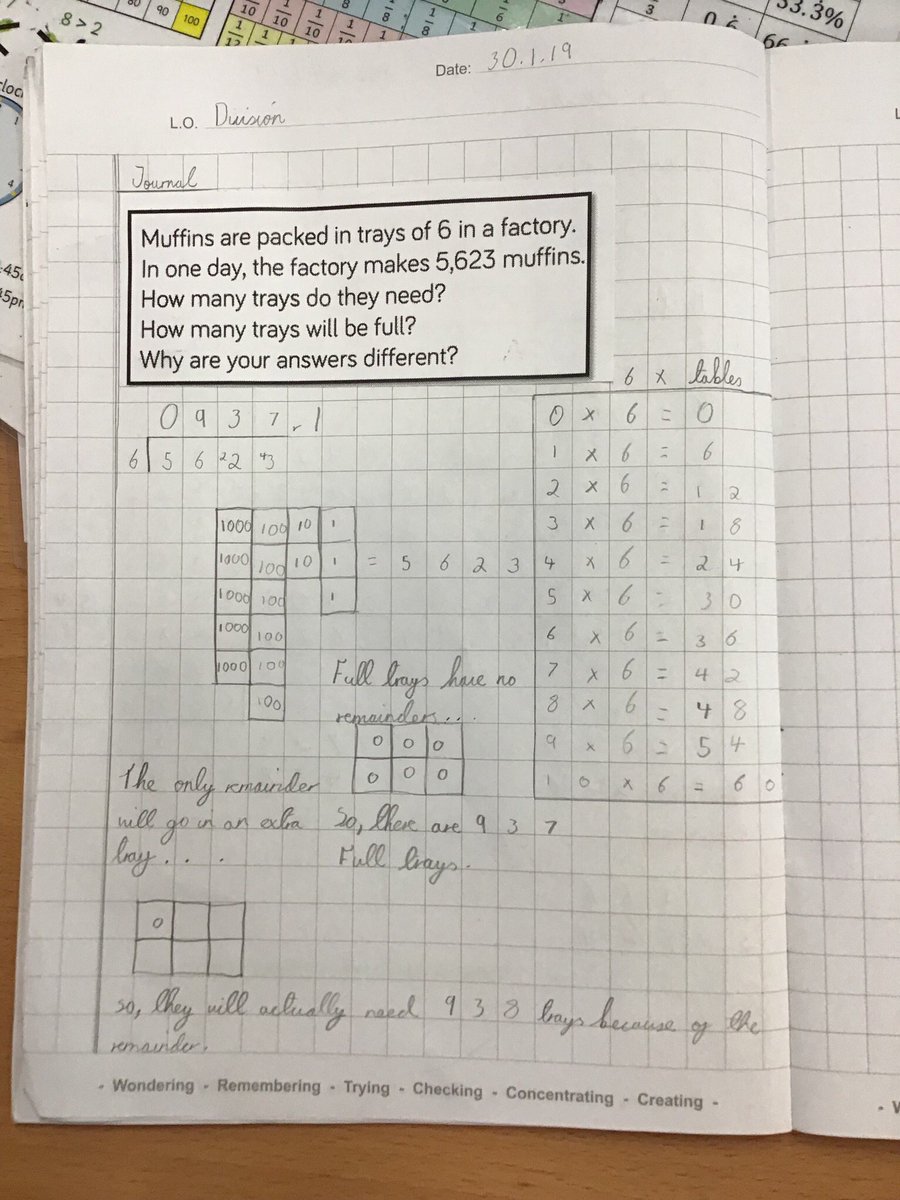 8 > 2
80 90 100
33.3%
Date: 30.1.19
L.O. Division
Journal
Muffins are packed in trays of 6 in a factory.
In one day, the factory makes 5,623 muffins.
How many trays do they need?
How many trays will be full?
Why are your answers different?
6 x tables
0 9 3 7 r 1
6 5 6 22 43
0 x 6 = 0
1 x 6 = 6
2 x 6 = 12
3 x 6 = 18
4 x 6 = 24
5 x 6 = 30
6 x 6 = 36
7 x 6 = 42
8 x 6 = 48
9 x 6 = 54
10 x 6 = 60
1000 100 10 1
1000 100 10 1 = 5 6 2 3
1000 100 1
1000 100
1000 100
100
Full trays have no
remainders...
0 0 0
0 0 0
So, there are 9 3 7
Full trays.
The only remainder
will go in an extra
tray....
0
so, they will actually need 9 3 8 trays because of the
remainder.
- Wondering - Remembering - Trying - Checking - Concentrating - Creating -